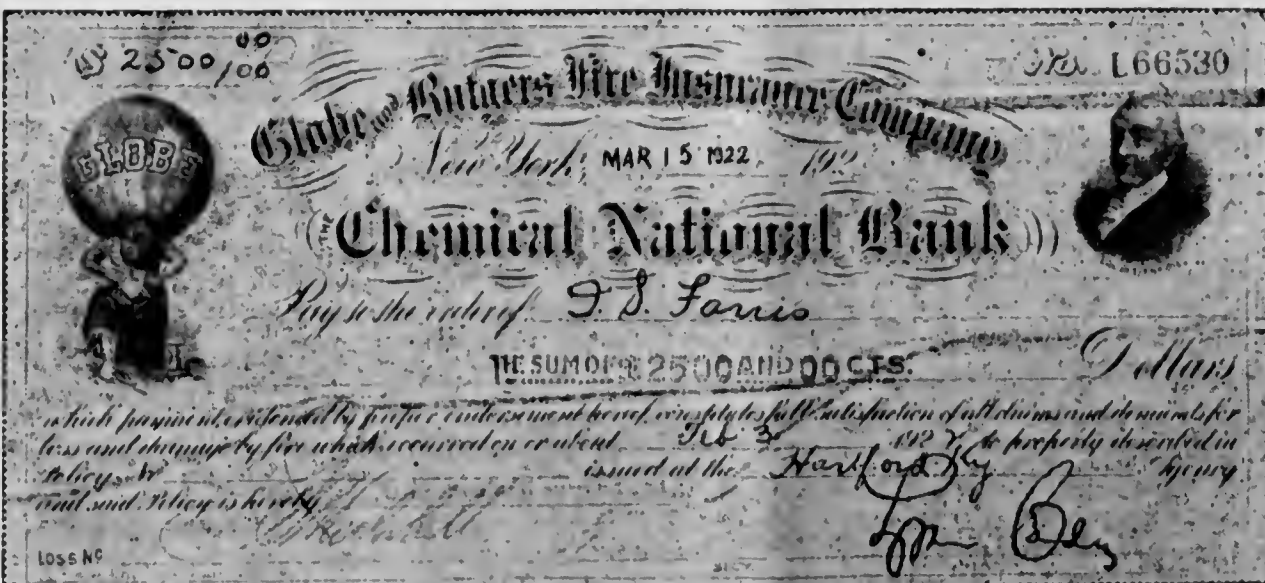 $ 2500 00/00
No. L66530
GLOBE
Globe and Rutgers Fire Insurance Company
New York, MAR 15 1922 192
THE Chemical National Bank
Pay to the order of I. S. Farris
THE SUM OF $ 2500 AND 00 CTS. Dollars
which payment, evidenced by proper endorsement hereof, constitutes full satisfaction of all claims and demands for
loss and damage by fire which occurred on or about Feb 3 1922 to property described in
Policy No issued at the Hartford Ky Agency
and said Policy is hereby
LOSS No